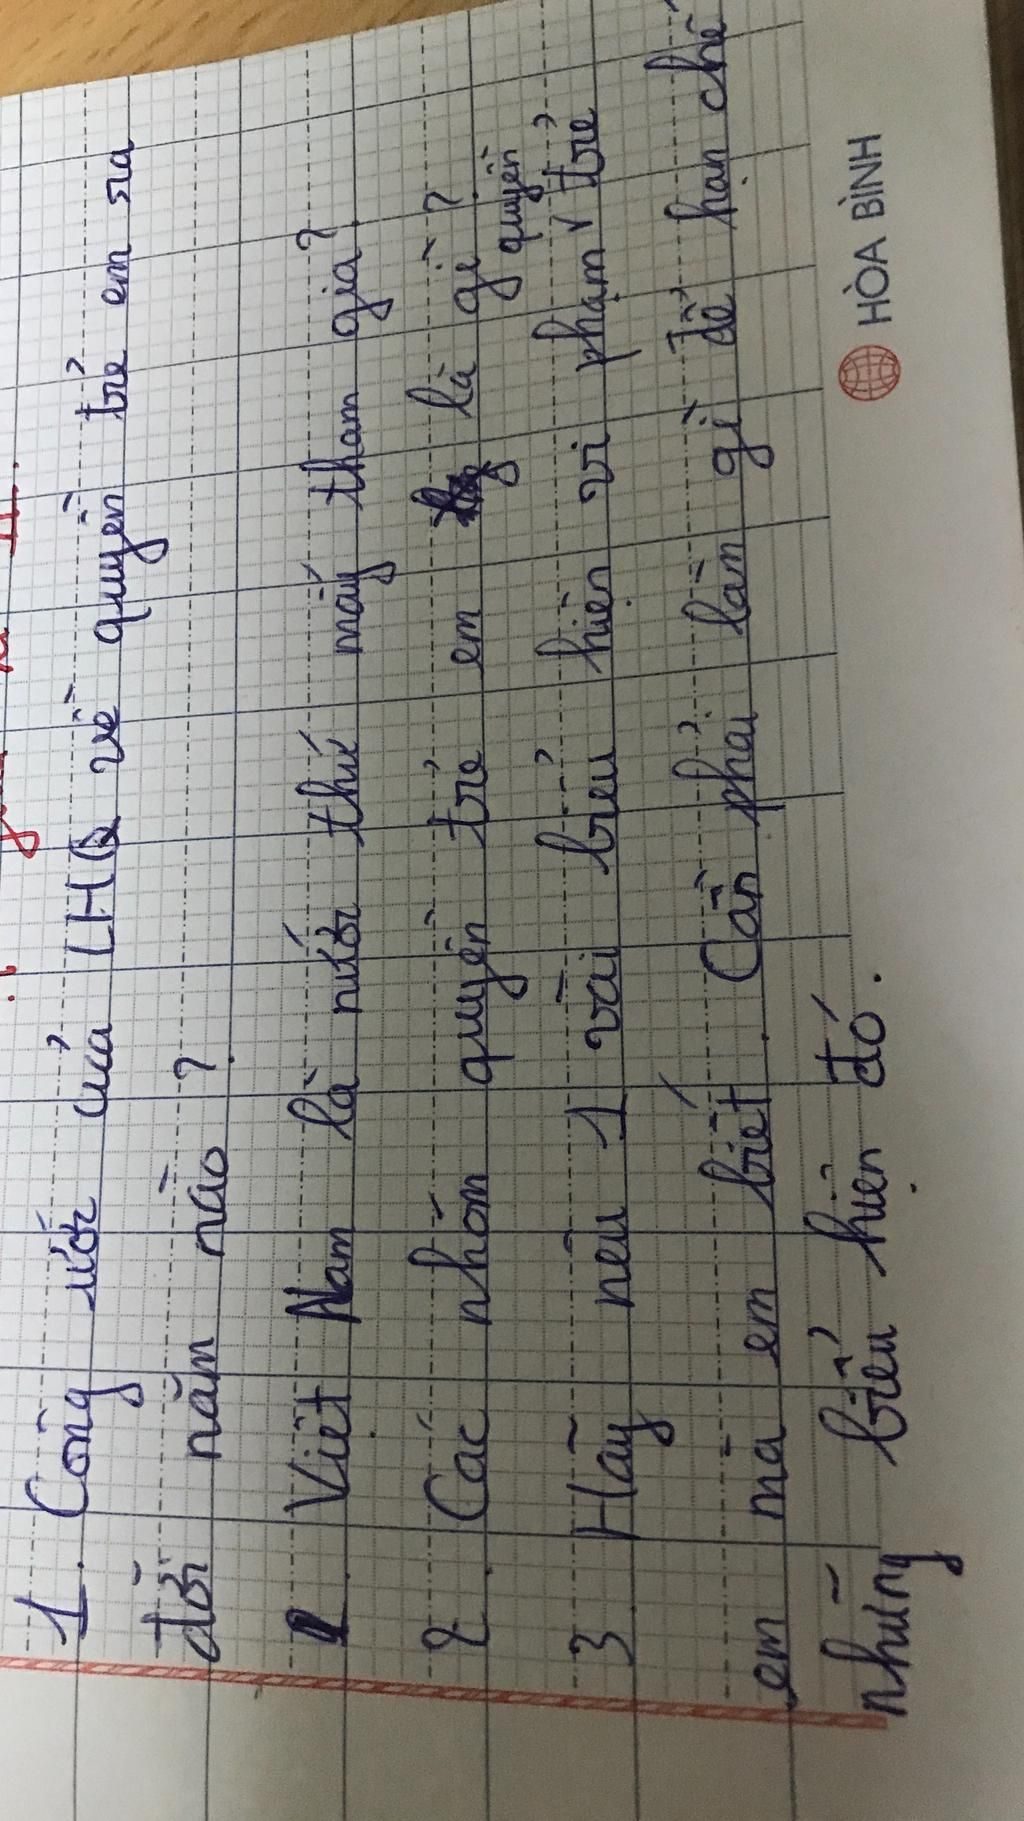 1. Công ước của LHQ về quyền trẻ em ra
đời năm nào?
Việt Nam là nước thứ mấy tham gia?
2. Các nhóm quyền trẻ em là gì?
3. Hãy nêu 1 vài biểu hiện vi phạm quyền trẻ
em mà em biết. Cần phải làm gì để hạn chế
những biểu hiện đó.
HÒA BÌNH